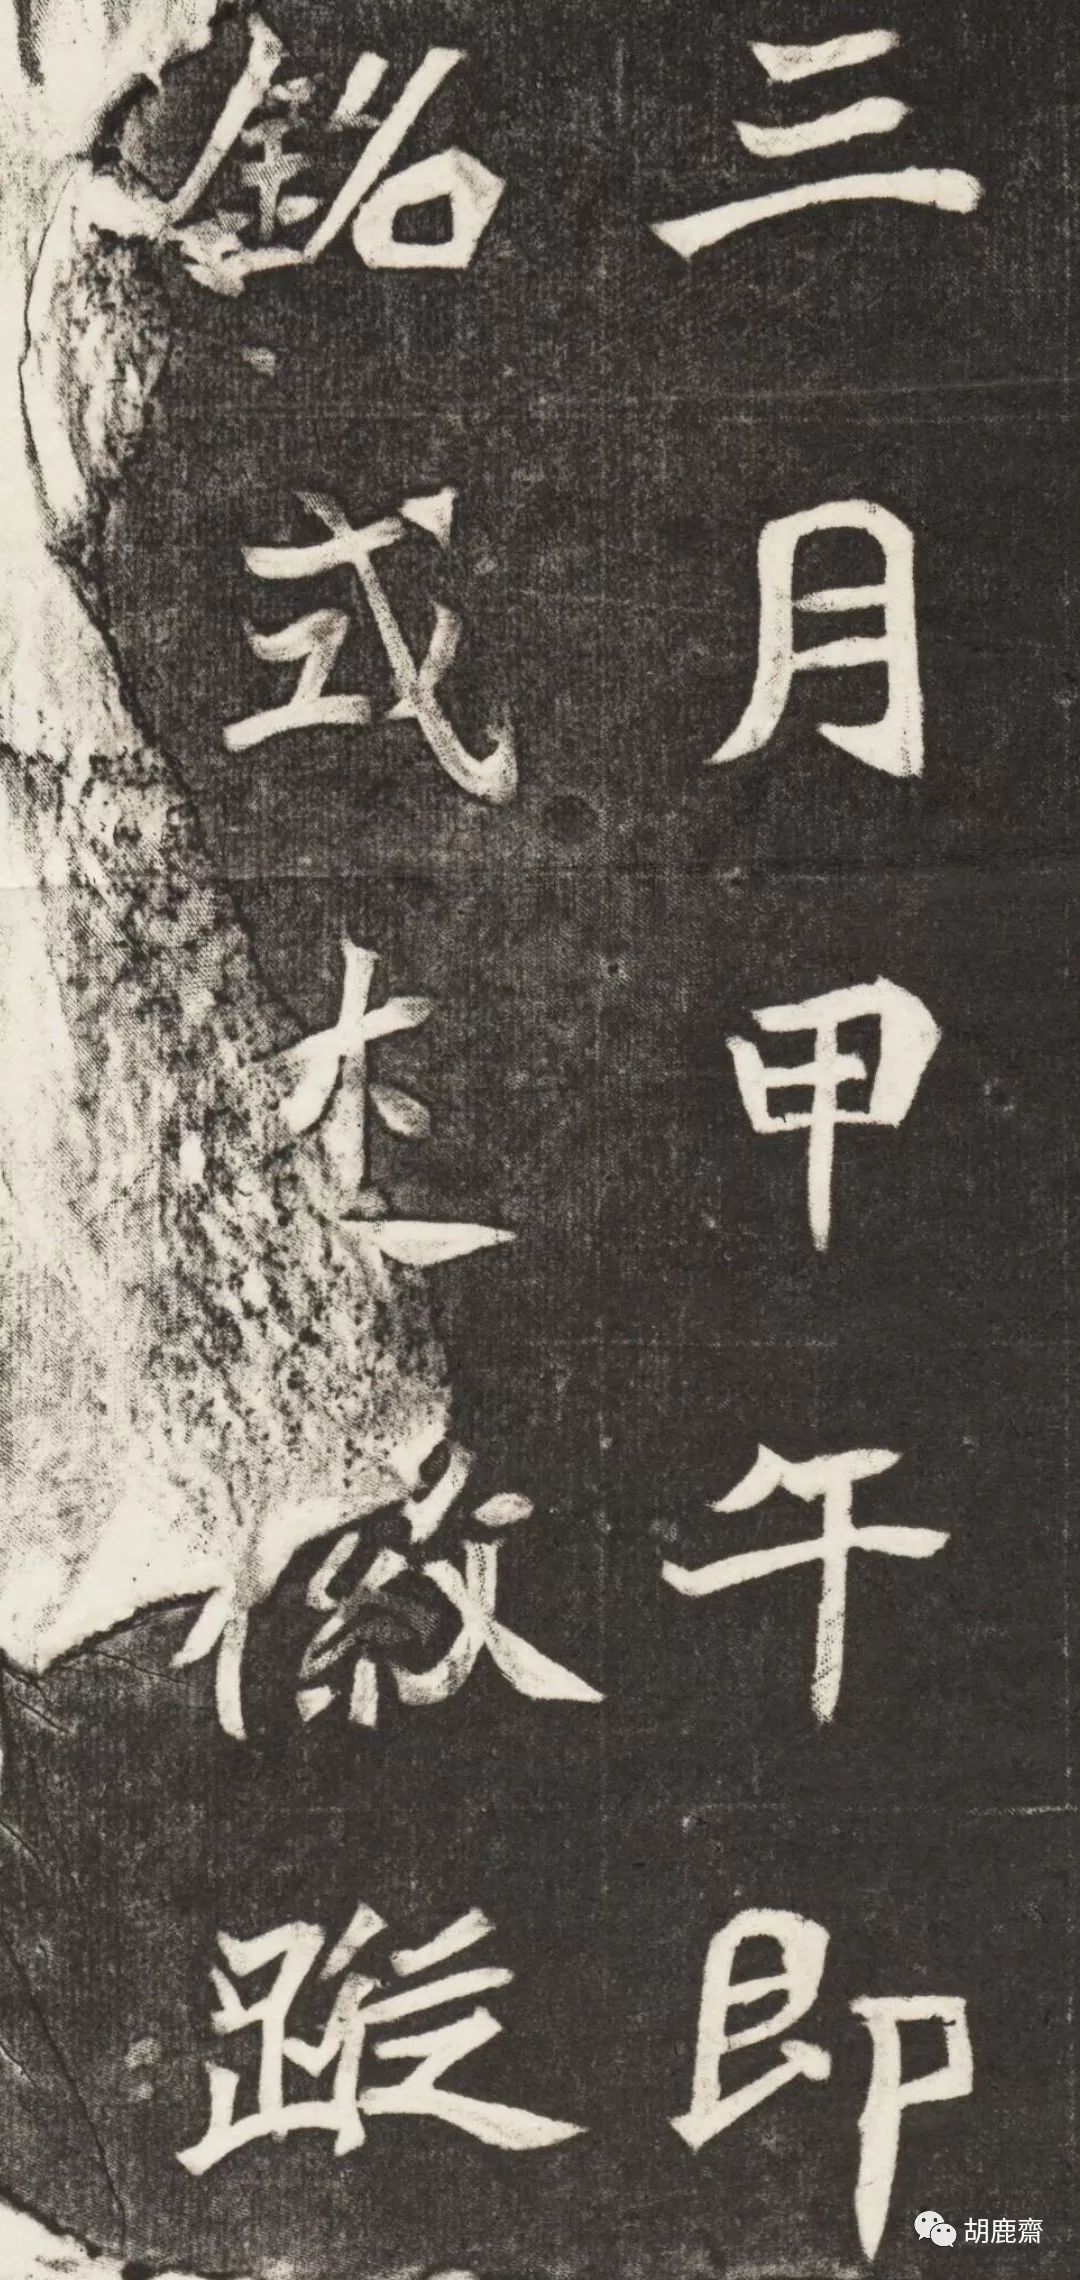 三月甲午即
銘式述徽蹤
胡鹿齋